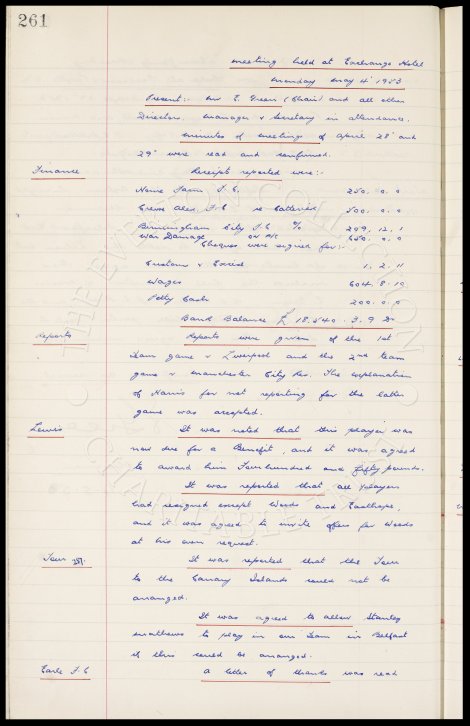 261
meeting held at Exchange Hotel
Monday May 4th 1953
Present:- Mr E. Green (Chair) and all other
Directors, Manager & Secretary in attendance.
Minutes of meetings of April 28th and
29th were read and confirmed.
Finance
Receipts reported were:-
Home Farm F.C. 250. 0. 0
Crewe Alex. F.C. 500. 0. 0
Birmingham City F.C. % 209. 12. 1
War Damage on a/c 650. 0. 0
Cheques were signed for:-
Customs & Excise 1. 2. 11
Wages 604. 8. 10
Petty Cash 200. 0. 0
Bank Balance £ 18.540. 3. 9 Dr
Reports
Reports were given of the 1st
Team game v Liverpool and the 2nd team
game v Manchester City Res. The explanation
of Harris for not reporting for the latter
game was accepted.
Lewis
It was noted that this player was
now due for a Benefit, and it was agreed
to award him Four hundred and fifty pounds.
It was reported that all players
had resigned except Woods and Easthope,
and it was agreed to invite offers for Woods
at his own request.
Tour
It was reported that the Tour
to the Canary Islands could not be
arranged.
It was agreed to allow Stanley
Matthews to play in our Team in Belfast
if this could be arranged.
Earle F.C
A letter of thanks was read
THE EVERTON COLLECTION
CHARITABLE TRUST